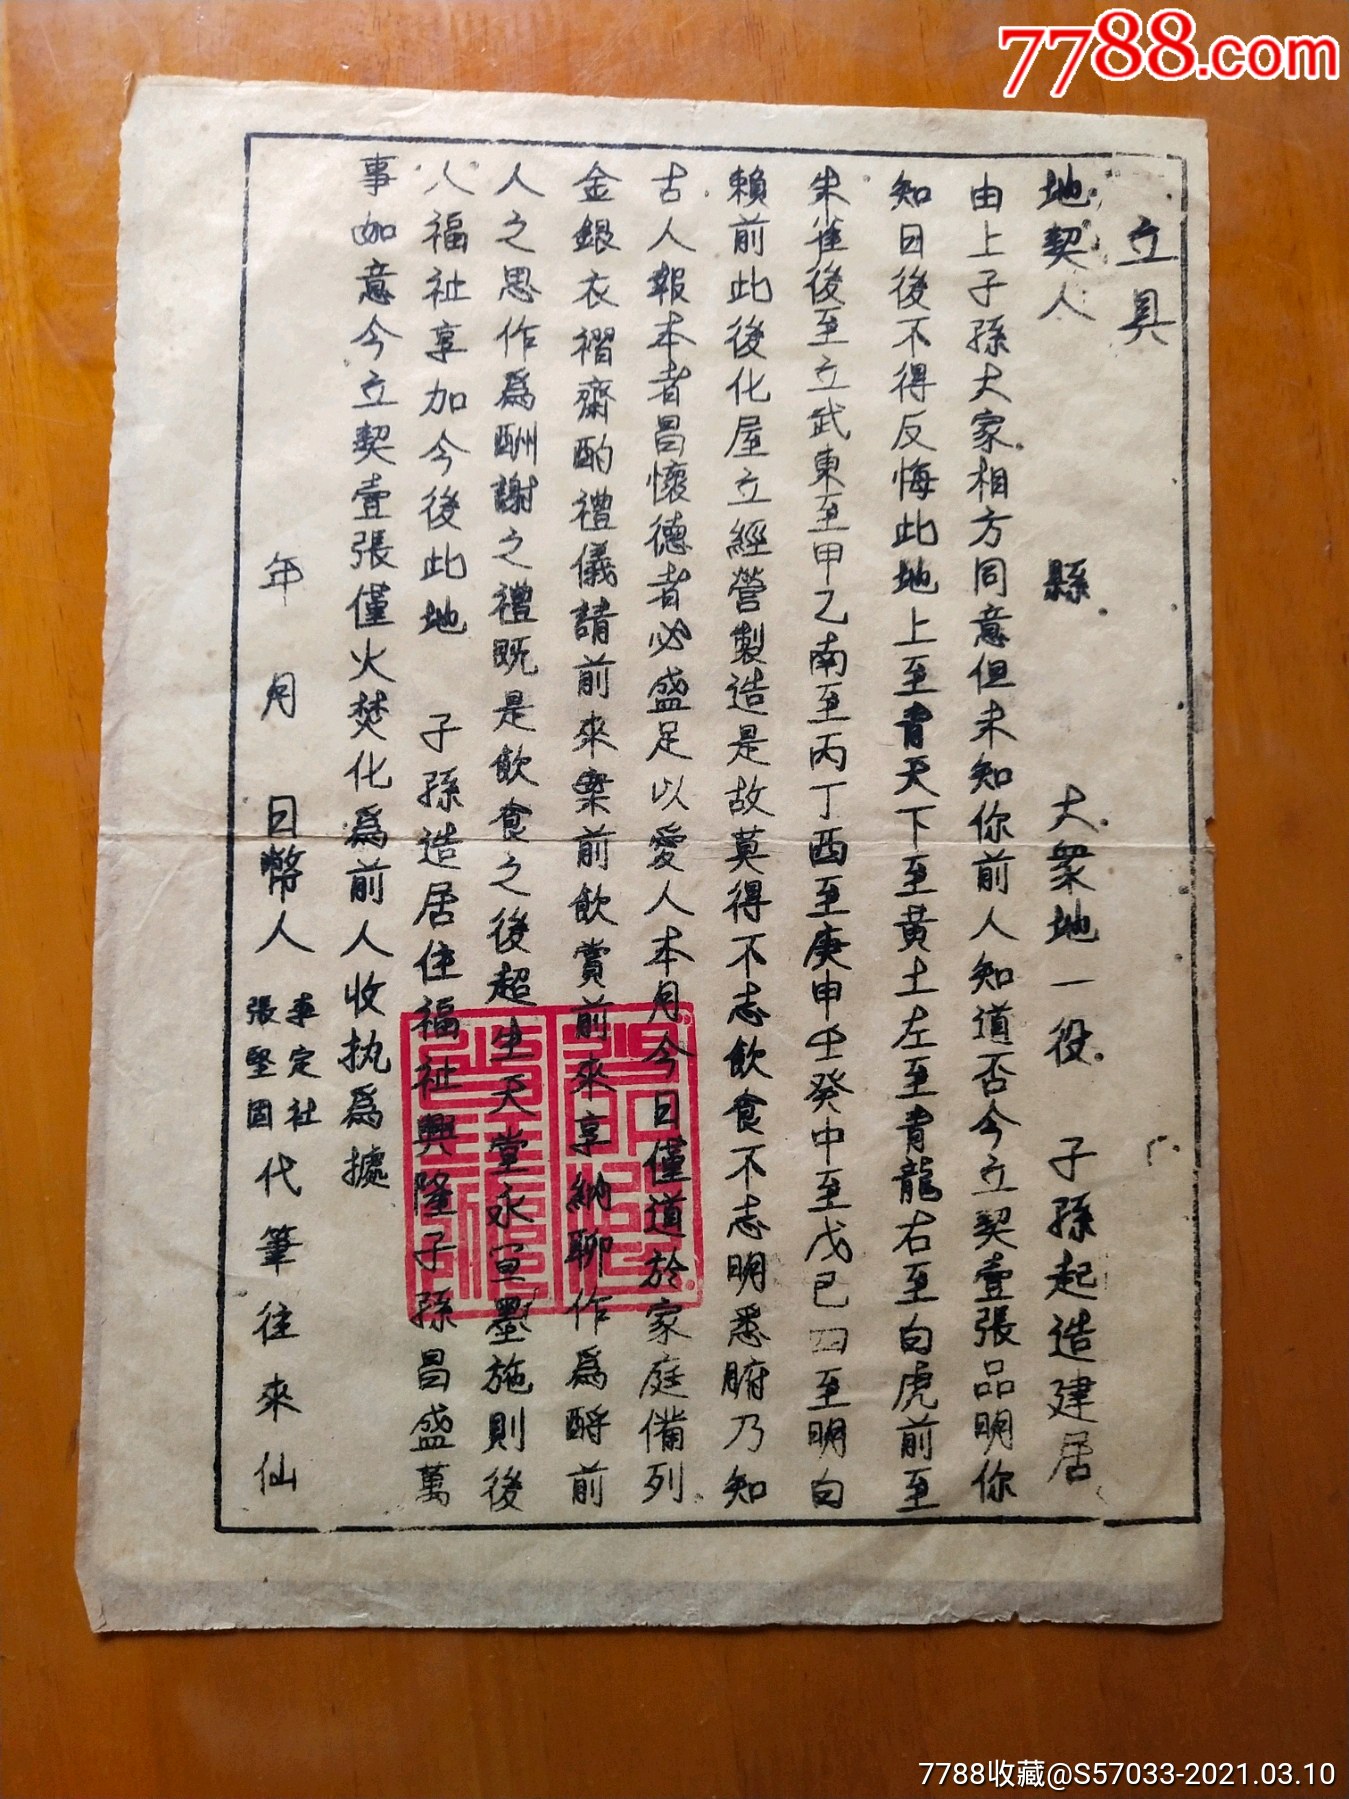 7788.com
立具
地契人 縣 大衆地一役 子孫起造建居
由上子孫大家相方同意但未知你前人知道否今立契壹張品明你
知日後不得反悔此地上至青天下至黃土左至青龍右至白虎前至
朱雀後至立武東至甲乙南至丙丁西至庚申壬癸中至戊已四至明白
賴前此後化屋立經營製造是故莫得不志飲食不志明悉腑乃知
古人報本者昌懷德者必盛足以愛人本月今日僅道於家庭備列
金銀衣褶齋酌禮儀請前來案前飲賞前來享納聊作爲酹前
人之思作爲酬謝之禮既是飲食之後超生天堂永宣墨施則後
人福祉享加今後此地 子孫造居住福祉興隆子孫昌盛萬
事如意今立契壹張僅火焚化爲前人收执爲據
年 月 日幣人 李定社 張堅固 代筆往來仙
7788收藏@S57033-2021.03.10